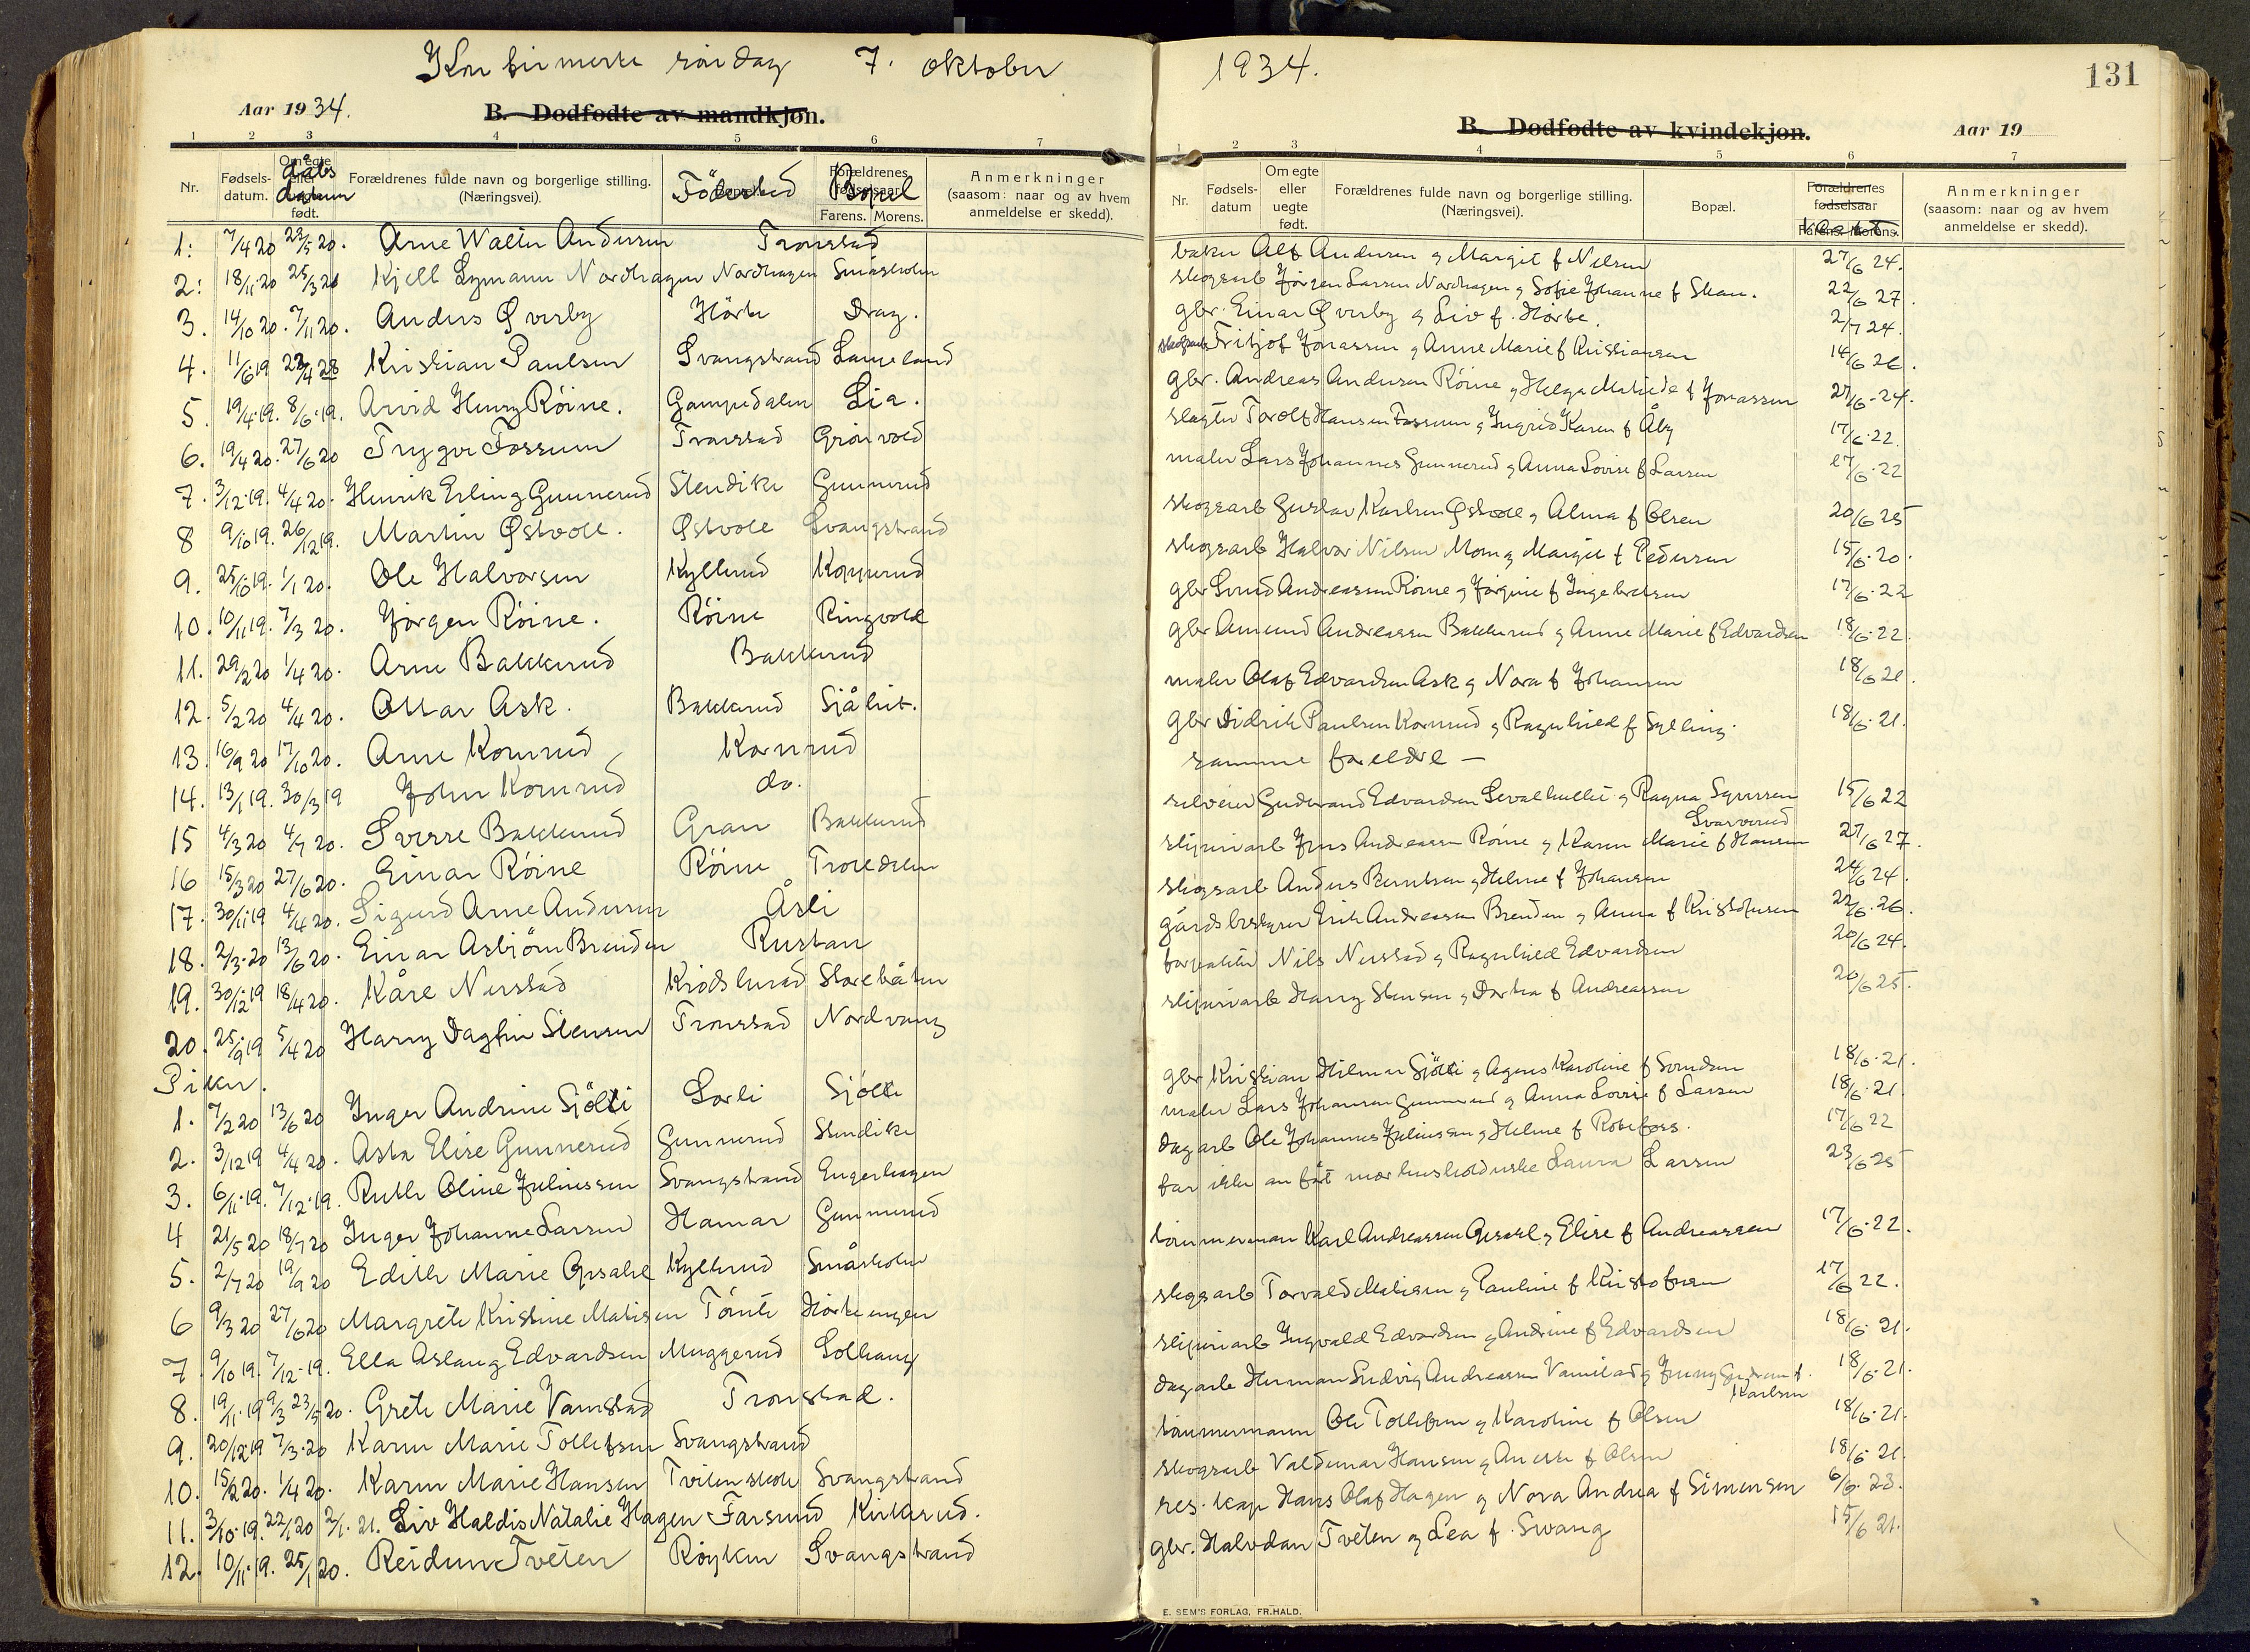 Konfirmerte søndag 7. oktober 1934.
131
Aar 1934.
B. Dødfødte av mandkjøn.
1 2 3 4 5 6 7
Nr.
Fødsels-datum.
Om egte eller født.
dåbs datum
Forældrenes fulde navn og borgerlige stilling. (Næringsvei).
Fødested
Forældrenes fødselsaar
Bopel
Farens. Morens.
Anmerkninger (saasom: naar og av hvem anmeldelse er skedd).
1: 7/4 20 22/5 20. Arne Walter Andersen Tronstad
2: 18/11 20 25/3 21 Kjell Lymann Nordhagen Nordhagen Småsholm
3. 14/10 20. 7/11 20. Anders Øverby Hørte Drag.
4. 11/6 19 22/4 28 Kristian Paulsen Svangstrand Lameland
5. 19/4 19. 8/6 19. Arvid Henry Röine. Gampedalen Lia.
6. 19/4 20. 27/6 20 Trygve Fossum Tronstad Grönvold
7. 3/12 19. 4/4 20. Henrik Erling Gunnerud Stendike Gunnerud
8 9/10 19. 26/12 19. Martin Østvold. Østvold Svangstrand
9. 25/6 19. 1/1 20. Ole Halvorsen Kyllerud Kopperud
10. 10/11 19. 7/3 20. Jørgen Röine. Röine Ringvold
11. 29/2 20 1/4 20. Arne Bakkerud Bakkerud
12. 5/2 20 4/4 20. Ottar Ask. Bakkerud Sjåhit.
13. 16/9 20 17/10 20. Arne Komrud Komrud
14. 13/1 19. 30/3 19 John Komrud do.
15 4/3 20 4/7 20. Sverre Bakkerud Gran Bakkerud
16 15/3 20 27/6 20. Einar Röine Röine Trolldalen
17. 30/11 19 4/4 20. Sigurd Arne Andersen Åsli
18. 2/3 20 13/6 20. Einar Asbjörn Brenden Rustan
19. 30/12 19 18/4 20. Kåre Nerstad Krødsherad Storebåten
20. 25/9 19 5/4 20 Harry Dagfin Stensen Tronstad Nordvang
Piker.
1. 7/2 20 13/6 20 Inger Andrine Sjölli Sørli Sjölli
2. 3/12 19 4/4 20. Asta Elise Gunnerud Gunnerud Stendike
3. 6/11 19. 7/12 19. Ruth Oline Juliussen Svangstrand Engerhagen
4 21/5 20 18/7 20 Inger Johanne Larsen Hamar Gunnerud
5. 2/7 20 19/9 20 Edith Marie Opsahl Kyllerud Småsholm
6 9/3 20 27/6 20 Margrete Kristine Matisen Tömte Hörteengen
7 9/10 19. 7/12 19. Ella Aslaug Edvardsen Muggerud Solhaug
8. 19/11 19 9/3 23/5 20. Grete Marie Vamstad Tronstad.
9. 20/12 19 7/3 20 Karen Marie Tollefsen Svangstrand
10. 15/2 20. 1/4 20. Karen Marie Hansen Tveten skole Svangstrand
11. 3/10 19. 22/1 20 2/1. 21. Liv Haldis Natalie Hagen Farsund Kirkerud.
12. 10/11 19. 25/1 20. Reidun Tveten Röyken Svangstrand
B. Dødfødte av kvindekjøn.
Aar 19
1 2 3 4 5 6 7
Nr.
Fødsels-datum
Om egte eller uegte født.
Forældrenes fulde navn og borgerlige stilling. (Næringsvei).
Bopæl.
Forældrenes fødselsaar
Farens. Morens.
Anmerkninger (saasom: naar og av hvem anmeldelse er skedd).
baker Alf Andersen og Margit f Nilsen 27/6 24.
skogsarb Jörgen Larsen Nordhagen og Sofie Johanne f Skau. 22/6 27.
gbr. Einar Øverby og Liv f. Hørte. 2/7 24.
skogsarb Fritjof Jonassen og Anne Marie f Kristiansen 14/6 26.
gbr. Andreas Andersen Röine og Helga Matilde f Jonassen 27/6 24.
slagter Torolf Hansen Fossum og Ingrid Karen f Åby 17/6 22.
maler Lars Johannes Gunnerud og Anna Lovise f Larsen 17/6 22
skogsarb Gustav Karlsen Østvold og Alma f Olsen 20/6 25
skogsarb Halvor Nilsen Moen og Margit f Pedersen 15/6 20.
gbr Svend Andreassen Röine og Jørgine f Ingebretsen 17/6 22
gbr Amund Andreassen Bakkerud og Anne Marie f Edvardsen 18/6 22.
maler Olaf Edvardsen Ask og Nora f Johansen 18/6 21.
gbr Didrik Paulsen Komrud og Ragnhild f Sylling. 18/6 21.
samme foreldre —
selveier Gudbrand Edvardsen og Ragna Syversen Svarverud 15/6 22
sliperiarb Jens Andreassen Röine og Karen Marie f Hansen 27/6 27.
skogsarb Anders Berntsen og Helene f Johansen 24/6 24.
gårdsbestyrer Erik Andreassen Brenden og Anna f Kristofersen 22/6 26.
forpakter Nils Nerstad og Ragnhild Edvardsen 20/6 24.
sliperiarb Harry Stensen og Dorthea f Andreassen 20/6 25.
gbr Kristian Hilmar Sjölli og Agnes Karoline f Svendsen 18/6 21.
maler Lars Johansen Gunnerud og Anna Lovise f Larsen 18/6 21.
dagarb Ole Johannes Juliussen og Helene f Robefoss. 17/6 22
far ikke anført mor husholderske Laura Larsen 23/6 25
tömmerman Karl Andreassen Opsahl og Elise f Andreassen 17/6 22.
skogsarb Torvald Matisen og Pauline f Kristofersen 17/6 22.
sliperiarb Ingvald Edvardsen og Andrine f Edvardsen 18/6 21.
dagarb Herman Ludvig Andreassen Vamstad og Jenny Gudrun f. Karlsen 18/6 21.
tömmermann Ole Tollefsen og Karoline f Olsen 18/6 21.
skogsarb Valdemar Hansen og Anette f Olsen 18/6 21.
res. kap Hans Olaf Hagen og Nora Andrea f Simensen 6/9 23.
gbr. Halvdan Tveten og Lea f. Swang 15/6 21.
E. SEM'S FORLAG, FR.HALD.